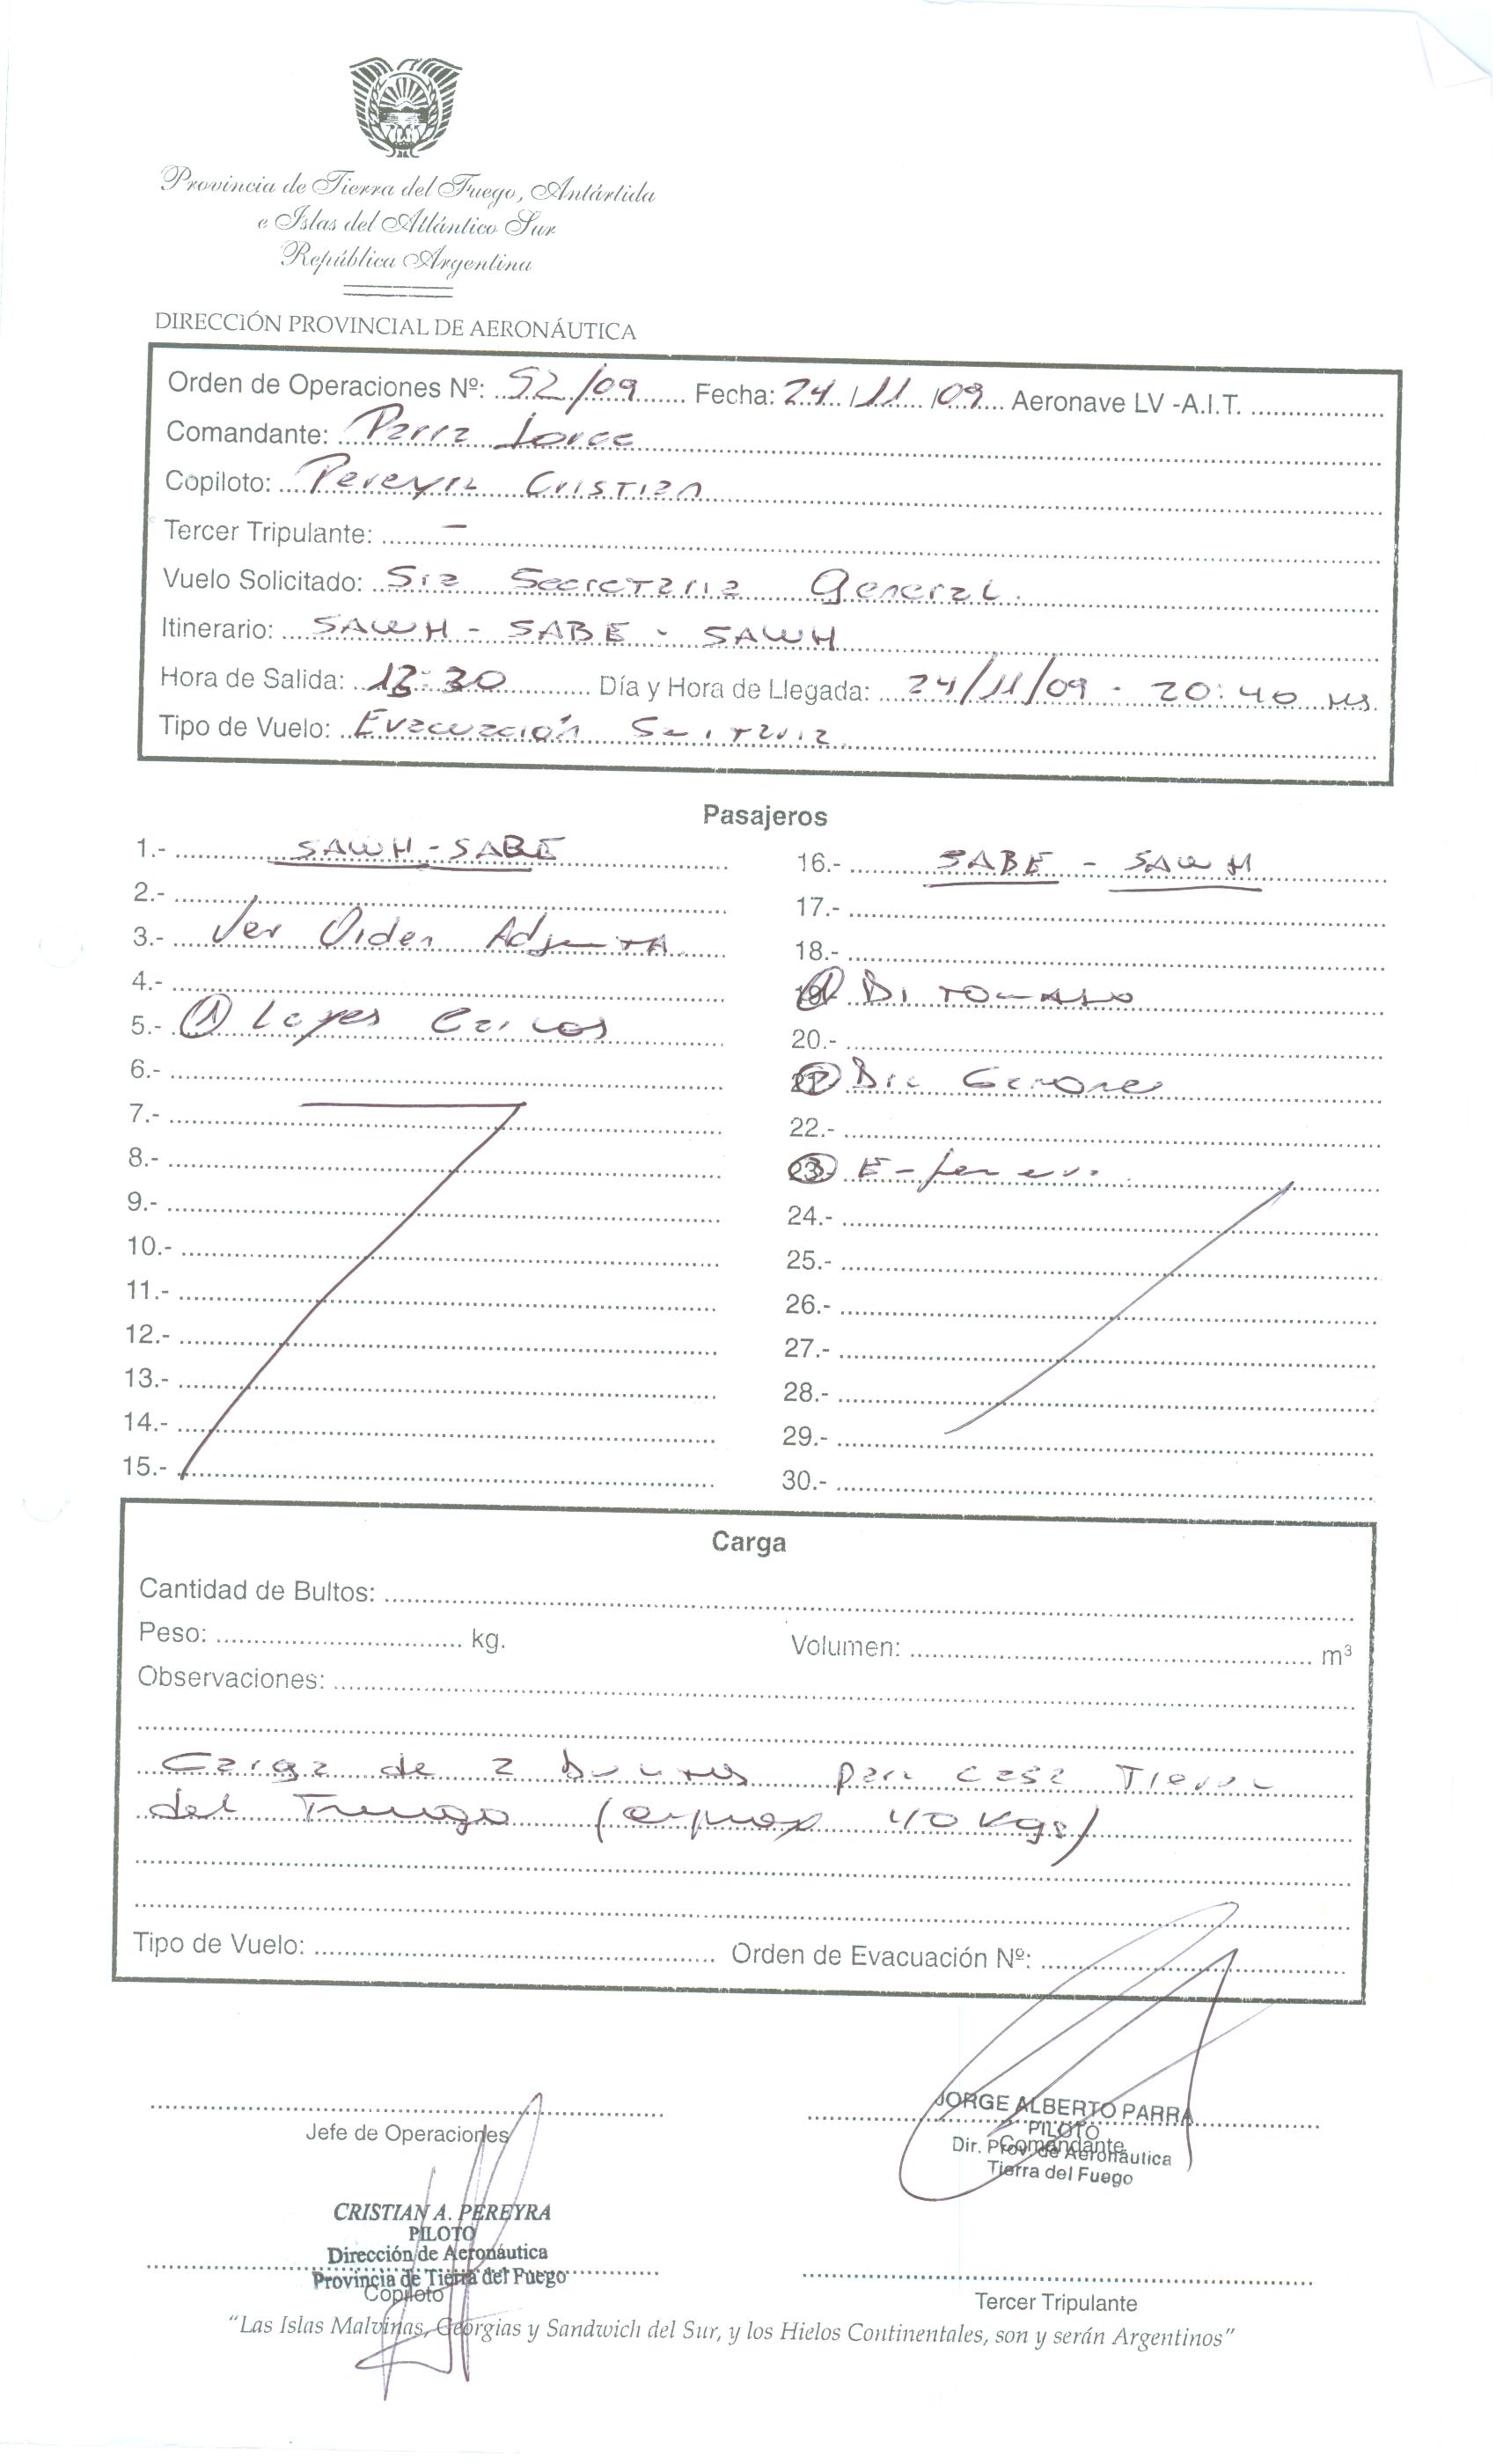 Provincia de Tierra del Fuego, Antártida
e Islas del Atlántico Sur
República Argentina
DIRECCIÓN PROVINCIAL DE AERONÁUTICA
Orden de Operaciones Nº: 52/09 Fecha: 24/11/09 Aeronave LV -A.I.T.
Comandante: Parra Jorge
Copiloto: Pereyra Cristian
Tercer Tripulante: -
Vuelo Solicitado: Sra Secretaria General.
Itinerario: SAWH - SABE - SAWH
Hora de Salida: 13:30 Día y Hora de Llegada: 24/11/09 - 20:40 Hs.
Tipo de Vuelo: Evacuación Sanitaria
Pasajeros
1.- SAWH - SABE
2.-
3.- Ver Orden Adjunta
4.-
5.- ① Lopes Carlos
6.-
7.-
8.-
9.-
10.-
11.-
12.-
13.-
14.-
15.-
16.- SABE - SAWH
17.-
18.-
19.- ① Di Tomaso
20.-
21.- ②
22.-
23.- ③
24.-
25.-
26.-
27.-
28.-
29.-
30.-
Carga
Cantidad de Bultos:
Peso: kg. Volumen: m³
Observaciones:
Carga de 2 bultos para casa Tierra
del Fuego (aprox 40 Kgs)
Tipo de Vuelo: Orden de Evacuación Nº:
Jefe de Operaciones
JORGE ALBERTO PARRA
PILOTO
Comandante
Dir. Prov. de Aeronáutica
Tierra del Fuego
CRISTIAN A. PEREYRA
PILOTO
Dirección de Aeronáutica
Provincia de Tierra del Fuego
Copiloto
Tercer Tripulante
"Las Islas Malvinas, Georgias y Sandwich del Sur, y los Hielos Continentales, son y serán Argentinos"